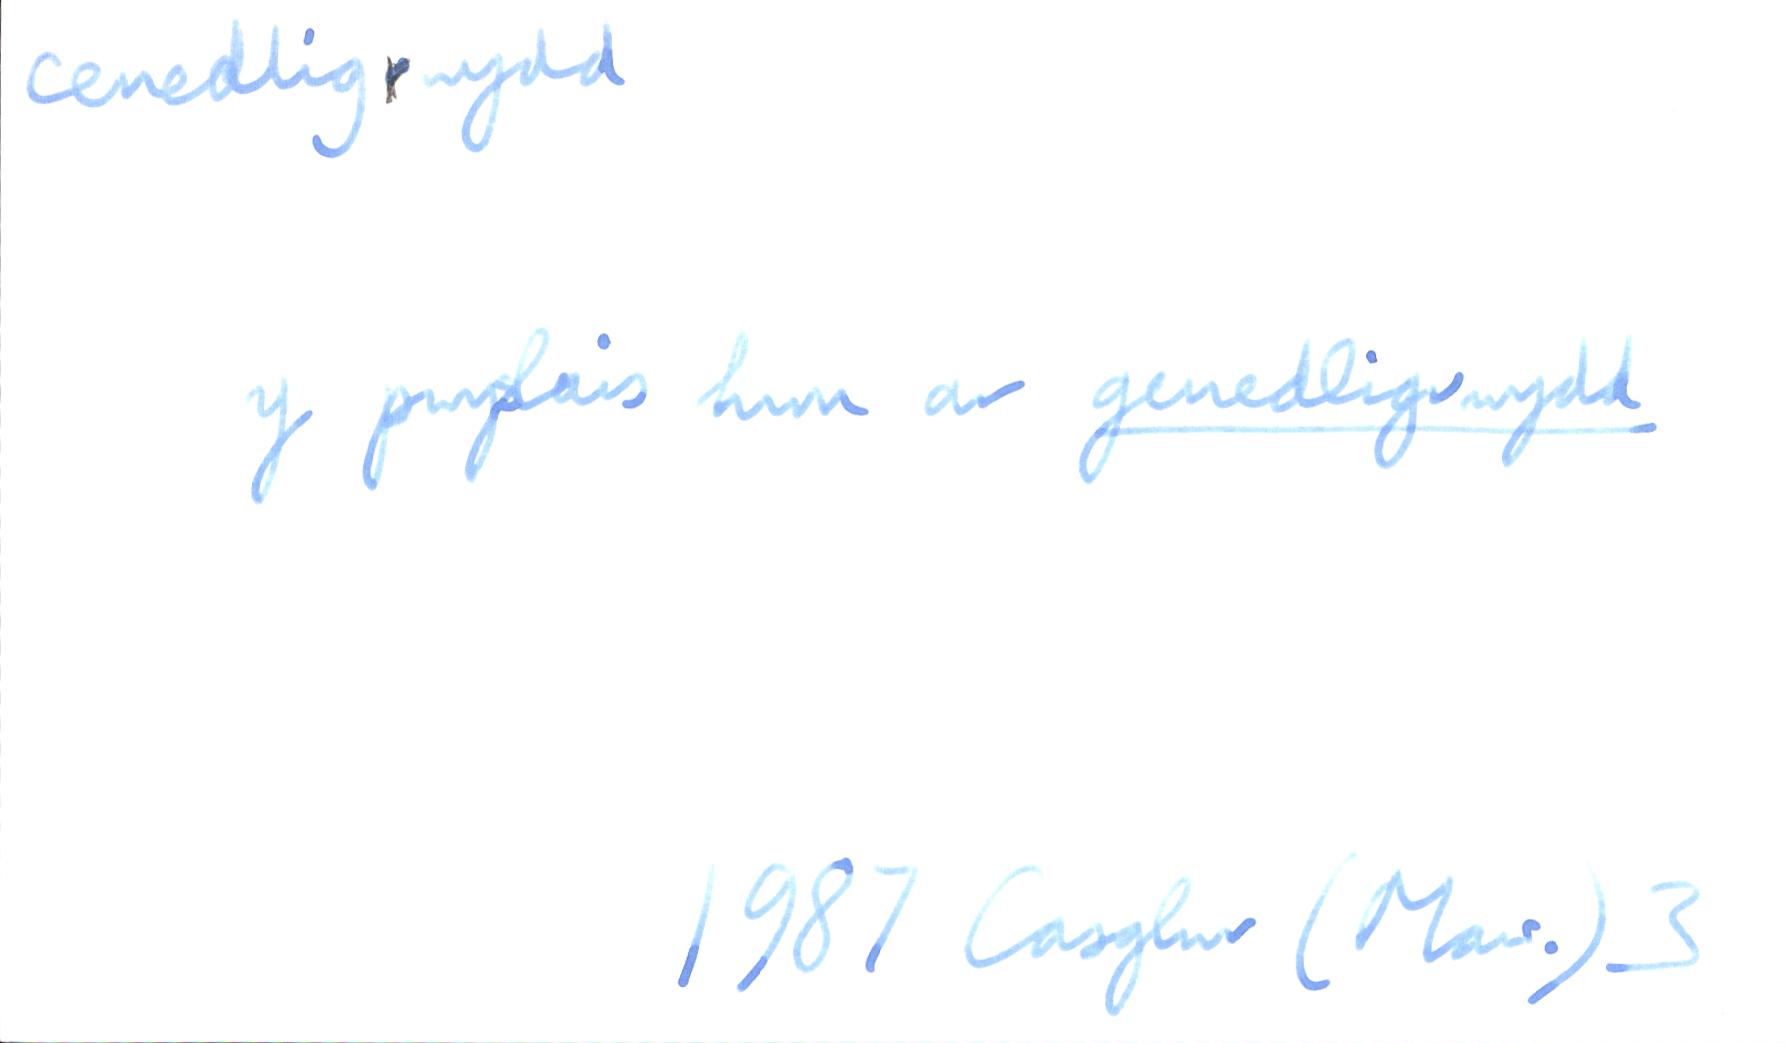 cenedligrwydd
y pwyslais hwn ar genedligrwydd
1987 Casglwr (Maw.) 3